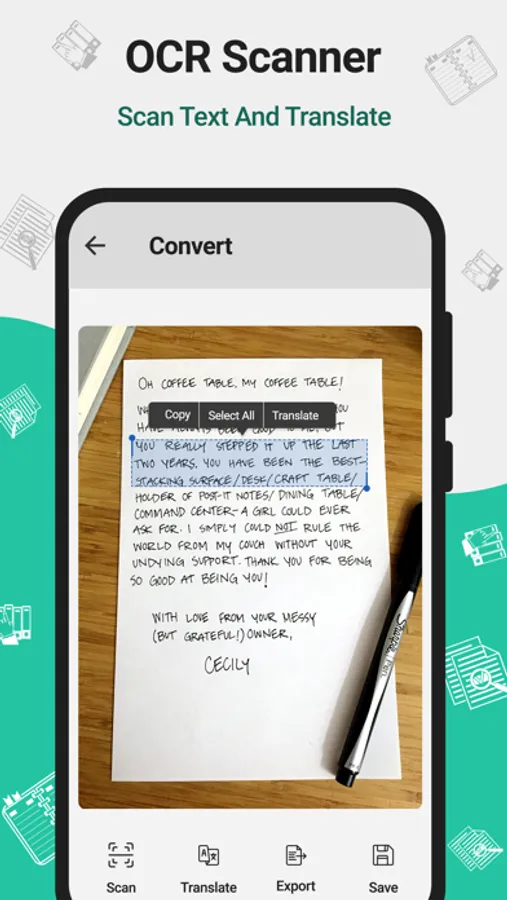 OCR Scanner
Scan Text And Translate
Convert
OH COFFEE TABLE, MY COFFEE TABLE!
Copy Select All Translate
YOU
YOU REALLY STEPPED IT UP THE LAST
TWO YEARS. YOU HAVE BEEN THE BEST-
STACKING SURFACE/DESK/CRAFT TABLE/
HOLDER OF POST-IT NOTES/DINING TABLE/
COMMAND CENTER-A GIRL COULD EVER
ASK FOR. I SIMPLY COULD NOT RULE THE
WORLD FROM MY COUCH WITHOUT YOUR
UNDYING SUPPORT. THANK YOU FOR BEING
SO GOOD AT BEING YOU!
WITH LOVE FROM YOUR MESSY
(BUT GRATEFUL!) OWNER,
CECILY
Sharpie Pen
Scan Translate Export Save